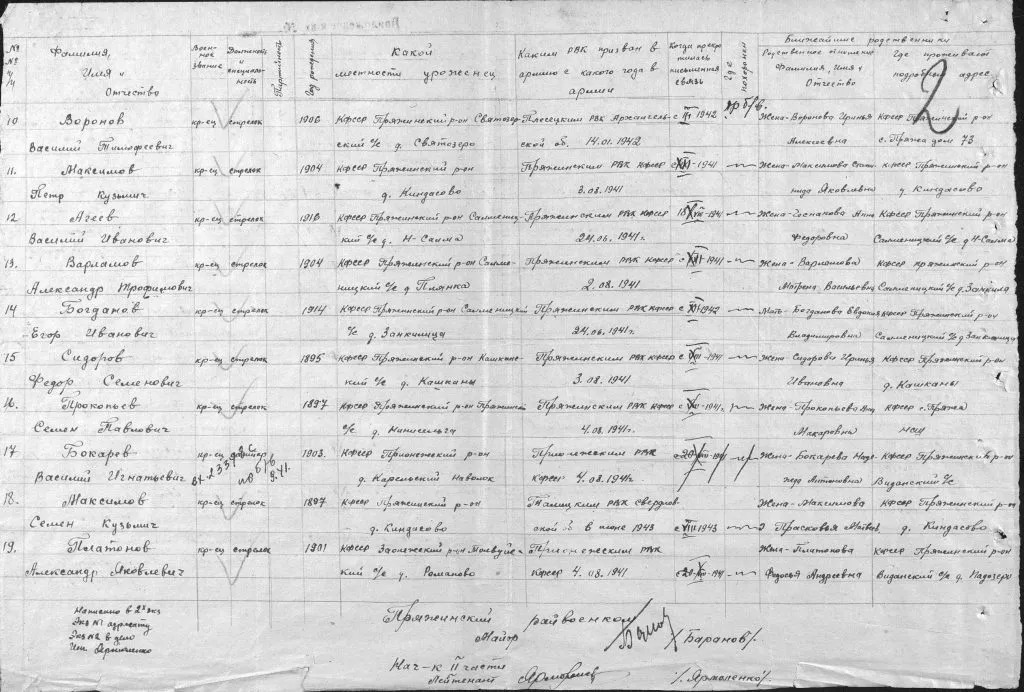 №№ п/п
Фамилия, Имя и Отчество
Военное звание
Должность и специальность
Партийность
Год рождения
Какой местности уроженец
Каким РВК призван в армию с какого года в армии
Когда прекратилась письменная связь
Где похоронен
Ближайшие родственники
Родственное отношение Фамилия, Имя и Отчество
Где проживают подробный адрес
2
пр б/в.
10 Воронов кр-ец стрелок 1906 КФССР Пряжинский р-он Святозер- Плесецким РВК Архангель- с 1942 Жена-Воронова Иринья КФССР Пряжинский р-он
Василий Тимофеевич ский с/с д. Святозеро ской об. 14.01.1942 Алексеевна с. Пряжа дом 73
11. Максимов кр-ец стрелок 1904 КФССР Пряжинский р-он Пряжинским РВК КФССР с 1941 Жена-Максимова КФССР Пряжинский р-он
Петр Кузьмич д. Киндасово 3.08.1941 Яковлевна д Киндасово
12 Агеев кр-ец стрелок 1916 КФССР Пряжинский р-он Салмениц- Пряжинским РВК КФССР 1941 Жена- Анна КФССР Пряжинский р-он
Василий Иванович кий с/с д. Н-Салма 24.06.1941г. Федоровна Салменицкий с/с д Н-Салма
13. Варламов кр-ец стрелок 1904 КФССР Пряжинский р-он Салме- Пряжинским РВК КФССР с 1941 Жена-Варламова КФССР Пряжинский р-он
Александр Трофимович ницкий с/с д Плянка 2.08.1941 Матрена Васильевна Салменицкий с/с д.
14 Богданов кр-ец стрелок 1914 КФССР Пряжинский р-он Салменицкий Пряжинским РВК КФССР с 1942 Мать-Богданова Евдокия КФССР Пряжинский р-он
Егор Иванович с/с д. 24.06.1941г. Владимировна Салменицкий с/с д
15 Сидоров кр-ец стрелок 1895 КФССР Пряжинский р-он Кашкан- Пряжинским РВК КФССР с 1941 Жена Сидорова Иринья КФССР Пряжинский р-он
Федор Семенович ский с/с д. Кашканы 3.08.1941 Ивановна д. Кашканы
16. Прокопьев кр-ец стрелок 1897 КФССР Пряжинский р-он Пряжинский Пряжинским РВК КФССР с 1941г. Жена-Прокопьева КФССР с. Пряжа
Семен Павлович с/с д. 4.08.1941г. Макаровна
17 Бокарев кр-ец 1903. КФССР Прионежский р-он Прионежским РВК с 20 1941 Жена-Бокарева Наде- КФССР Пряжинский р-он
Василий Игнатьевич д. Карельский Наволок КФССР 4.08.1941г. жда Антоновна Виданский с/с
18. Максимов кр-ец стрелок 1897 КФССР Пряжинский р-он Талицким РВК Свердлов- Жена-Максимова КФССР Пряжинский р-он
Семен Кузьмич д. Киндасово ской об в июне 1943 с VIII 1943 Прасковья д. Киндасово
19. Платонов кр-ец стрелок 1901 КФССР Заонежский р-он Толвуйс- Прионежским РВК Жена-Платонова КФССР Пряжинский р-он
Александр Яковлевич кий с/с д. Романово КФССР 4.08.1941 с 20 1941 Федосья Андреевна Виданский с/с д.
Написано в 2х экз
Экз №1 адресату
Экз №2 в дело
Исп Ярмоленко
Пряжинский райвоенком
Майор /Баранов/.
Нач-к II части
Лейтенант /.Ярмоленко/